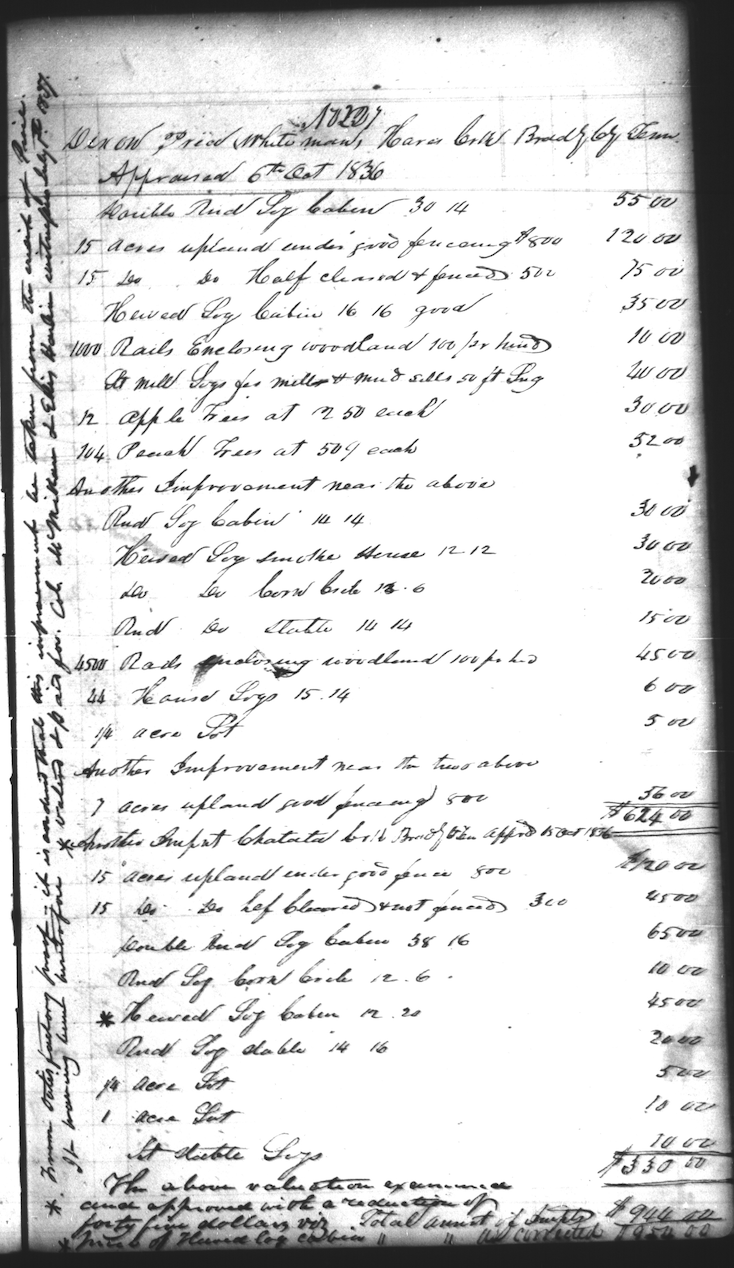 Dixon Price White man, Hares Crk Bradly Cty Tenn
Appraised 6th Oct 1836
Double Rnd Log Cabin 30 14 5500
15 acres upland under good fenceing $800 12000
15 Do Do Half cleared & fenced 500 7500
Hewed Log Cabin 16 16 good 3500
1000 Rails Enclosing woodland 100 pr hund 1000
Lt Mill Logs for mills & mud sills 50 ft Lng 4000
12 Apple Trees at 2 50 each 3000
104 Peach Trees at 50¢ each 5200
Another Improvement near the above
Rnd Log Cabin 14 14 3000
Hewed Log smoke House 12 12 3000
Do Do Corn Crib 6 2000
Rnd Do stable 14 14 1500
4500 Rails enclosing woodland 100 pr hd 4500
44 House Logs 15.14 6 00
1/4 acre Lot 5 00
Another Improvement near the two above
7 acres upland good fenceing 800 5600
$624 00
* Another Impvt Chatata Crk Bradly Ten Apprd 15 Oct 1836
15 acres upland under good fence 800 $120 00
15 Do Do hlf Cleared & not fenced 300 4500
Double Rnd Log Cabin 38 16 6500
Rnd Log Corn Crib 12.6 1000
* Hewed Log Cabin 12.20 4500
Rnd Log stable 14 16 2000
1/4 acre Lot 500
1 acre Lot 10 00
Lt stable Logs 10 00
$330 00
The above valuation examined
and approved with a reduction of
forty five dollars viz Total amnt of Impts $944 00
* price of Hewed log cabin " " as corrected
* From satisfactory proof it is ordered that this improvement be taken from the name of Price
It having been heretofore valued & paid for. Col.